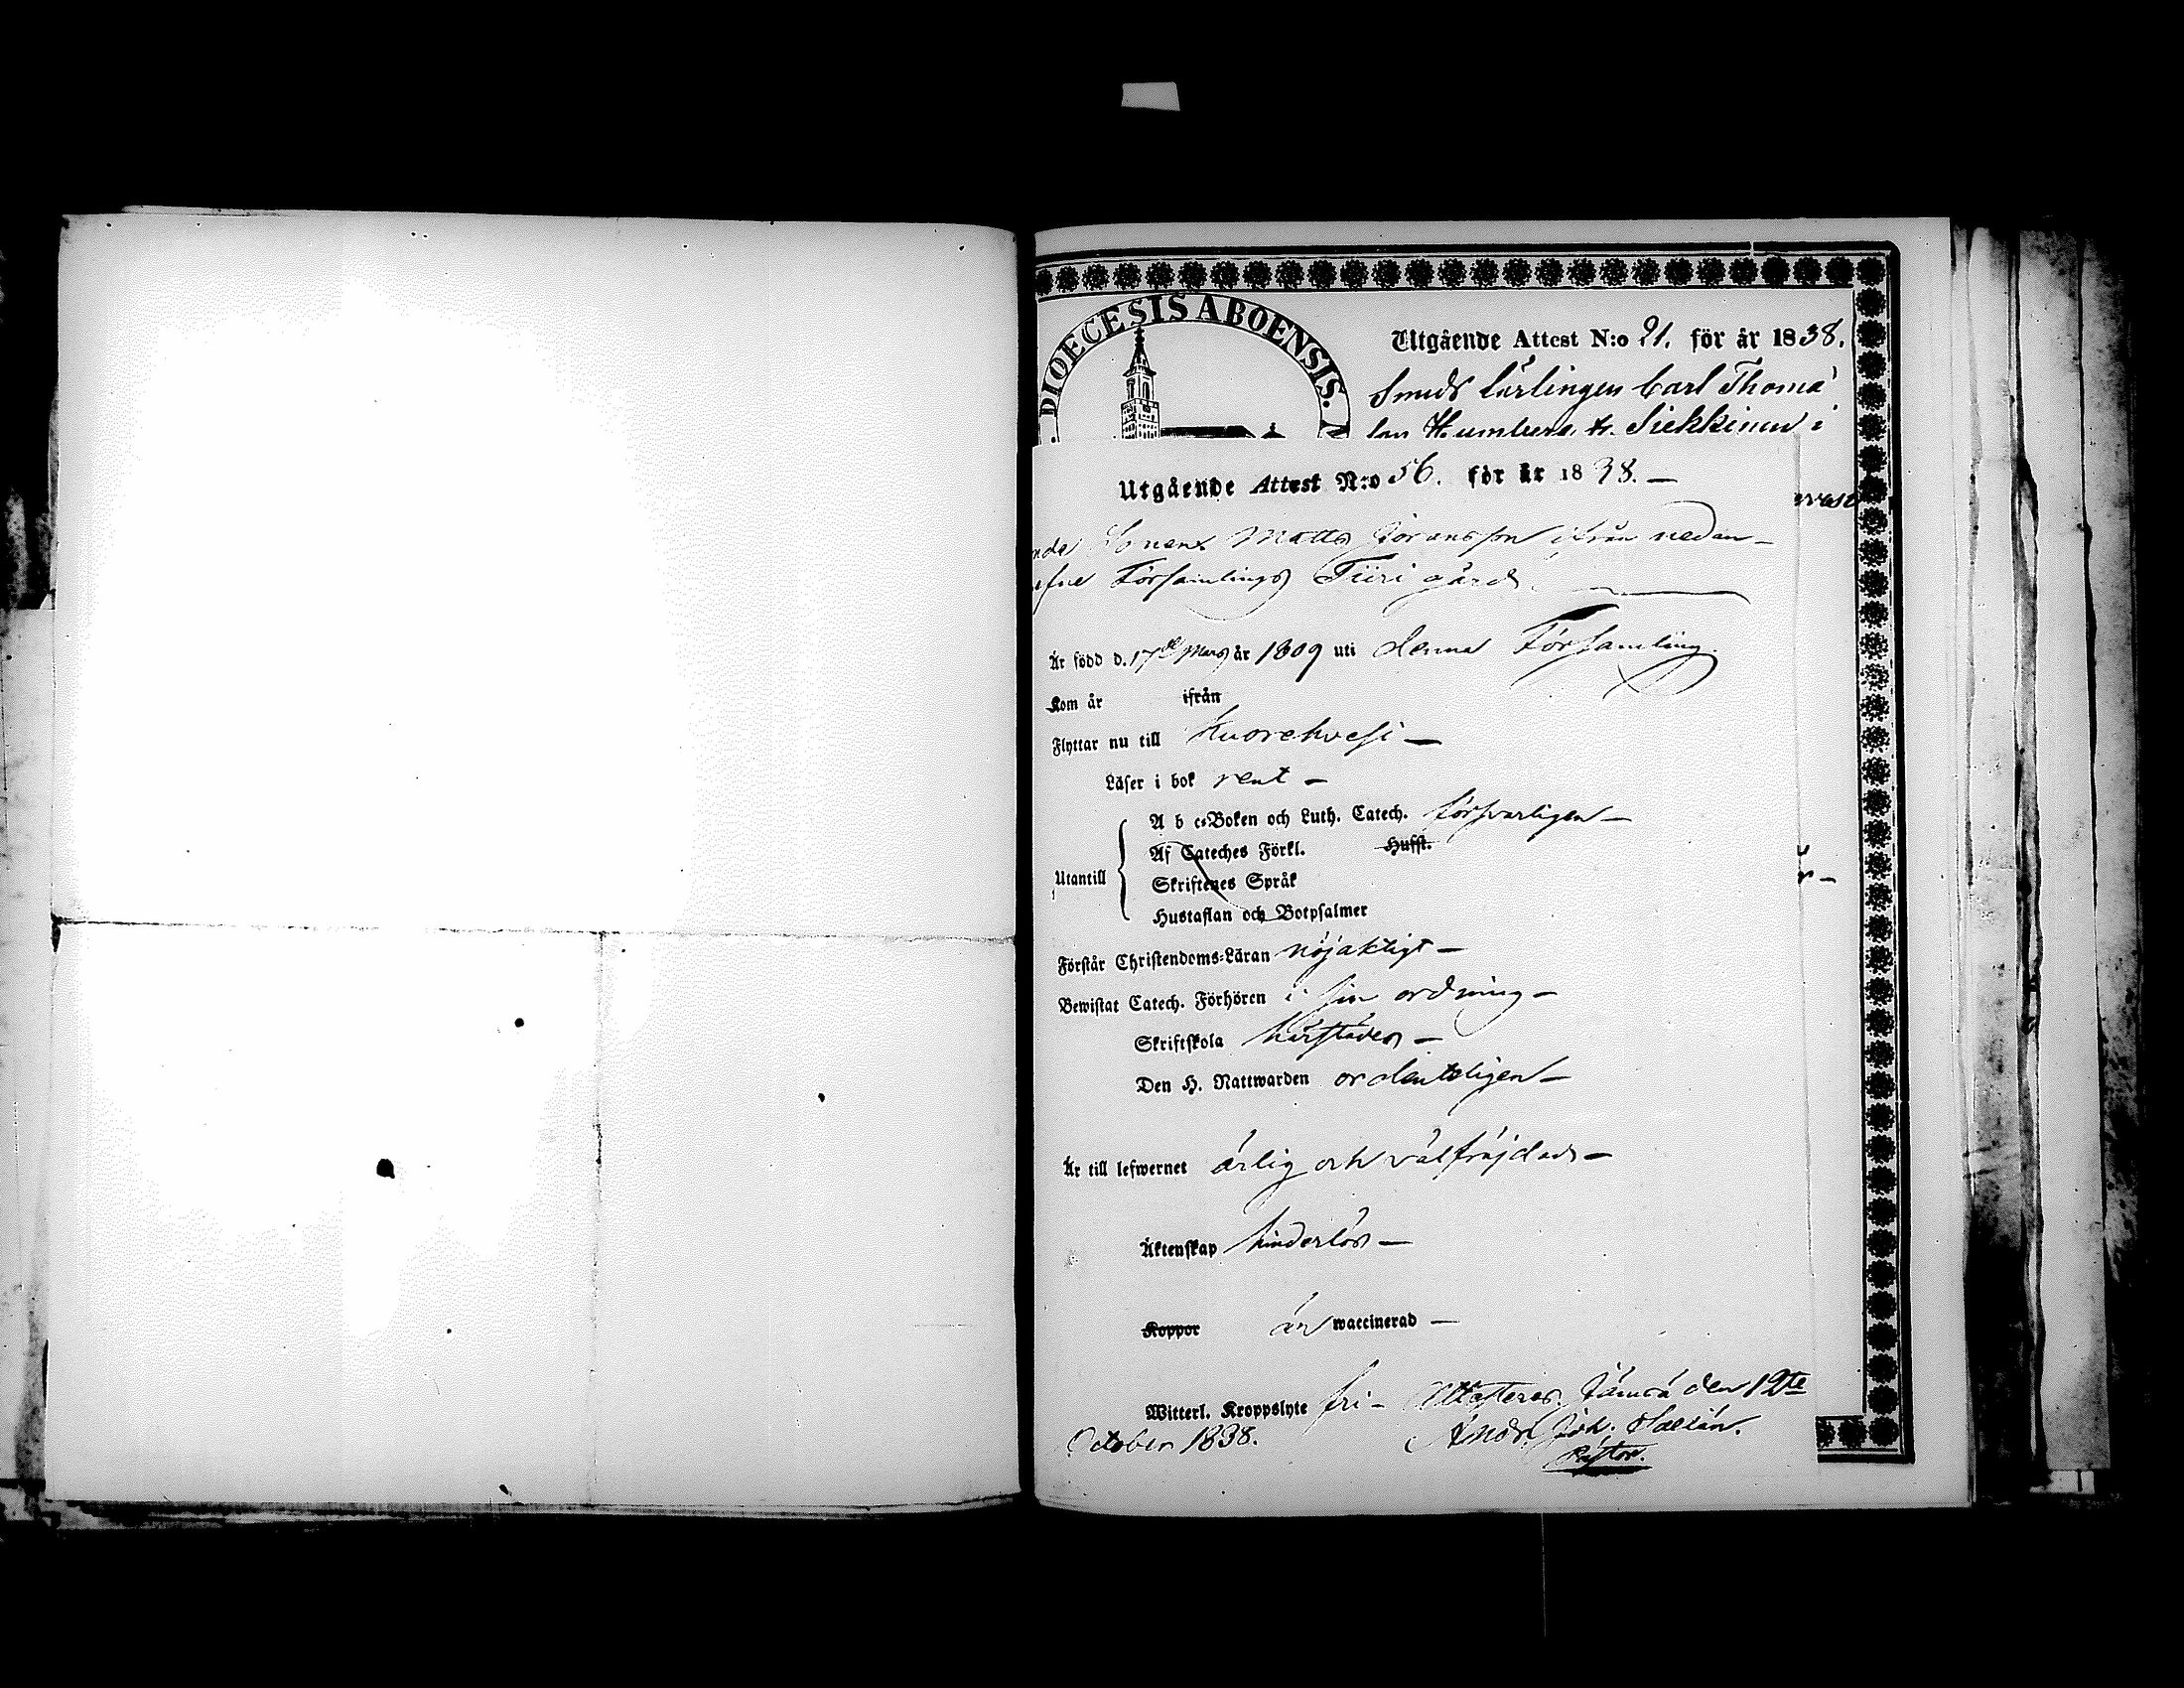 DIOECESIS ABOENSIS.
Utgående Attest N:o 21. för år 1838.
Smeds Lärlingen Carl Thomä
son Humberg fr. Siekkinen i
Utgående Attest N:o 56. för år 1838. —
Sonen Matts Göransson ifrån nedan-
Församlings Tiiri gård.
Är född d. 17de Mars år 1809 uti denna Församling.
Kom år ifrån
Flyttar nu till Kuorehvesi —
Läser i bok rent —
A b c-Boken och Luth. Catech. försvarligen —
Af Cateches Förkl. Hufst.
Utantill
Skriftenes Språk
Hustaflan och Botpsalmer
Förstår Christendoms-Läran nöjaktigt —
Bewistat Catech. Förhören i sin ordning —
Skriftskola härstädes —
Den H. Nattwarden ordenteligen —
Är till lefwernet ärlig och välfräjdad —
Äktenskap hinderlös —
Koppor än waccinerad —
Witterl. Kroppslyte fri — Attesteras Jämsä den 12te
October 1838. And. Joh.
Pastor.